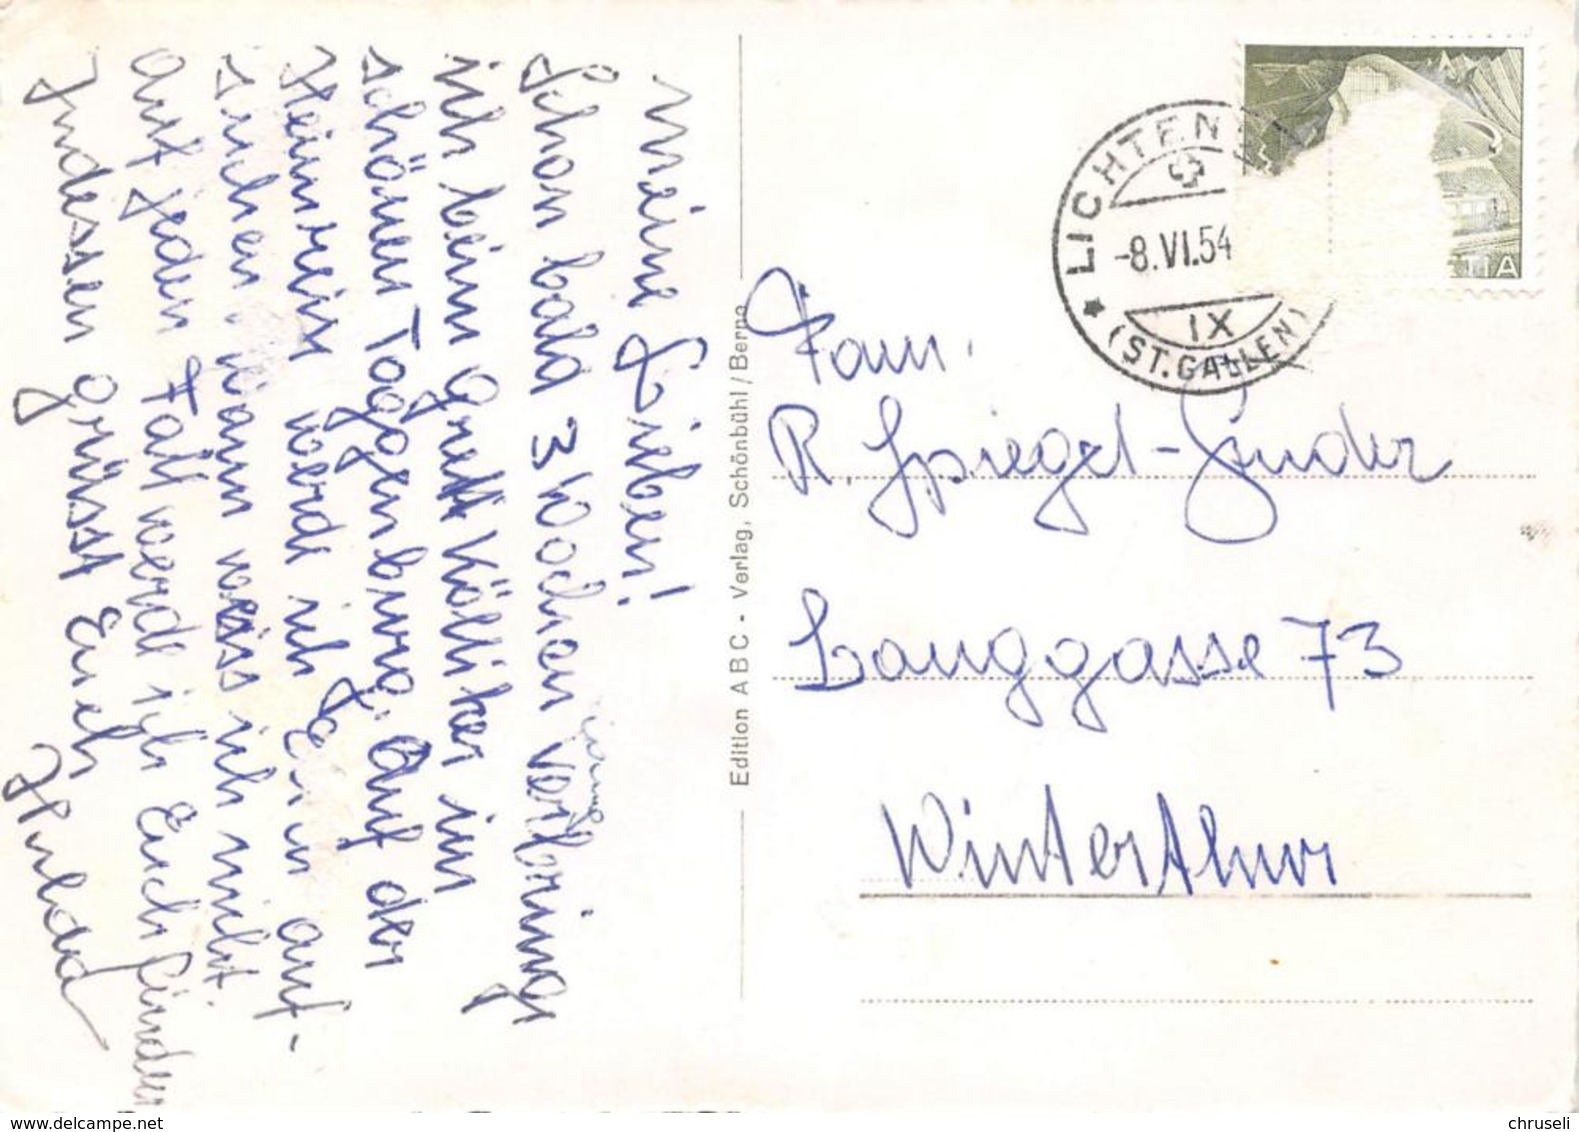 Meine Lieben!
Schon bald 3 Wochen verbringe
ich beim Grett Kölliker im
schönen Toggenburg. Auf der
Heimreise werde ich Euch auf-
suchen. Wann weiss ich nicht.
Auf jeden Fall werde ich Euch
Indessen grüsst Euch
Hulda
Edition ABC - Verlag, Schönbühl / Berne
LICHTEN
-8.VI.54
IX
(ST.GALLEN)
ETIA
Fam.
R. Spiegel-
Langgasse 73
Winterthur
www.delcampe.net
chruseli